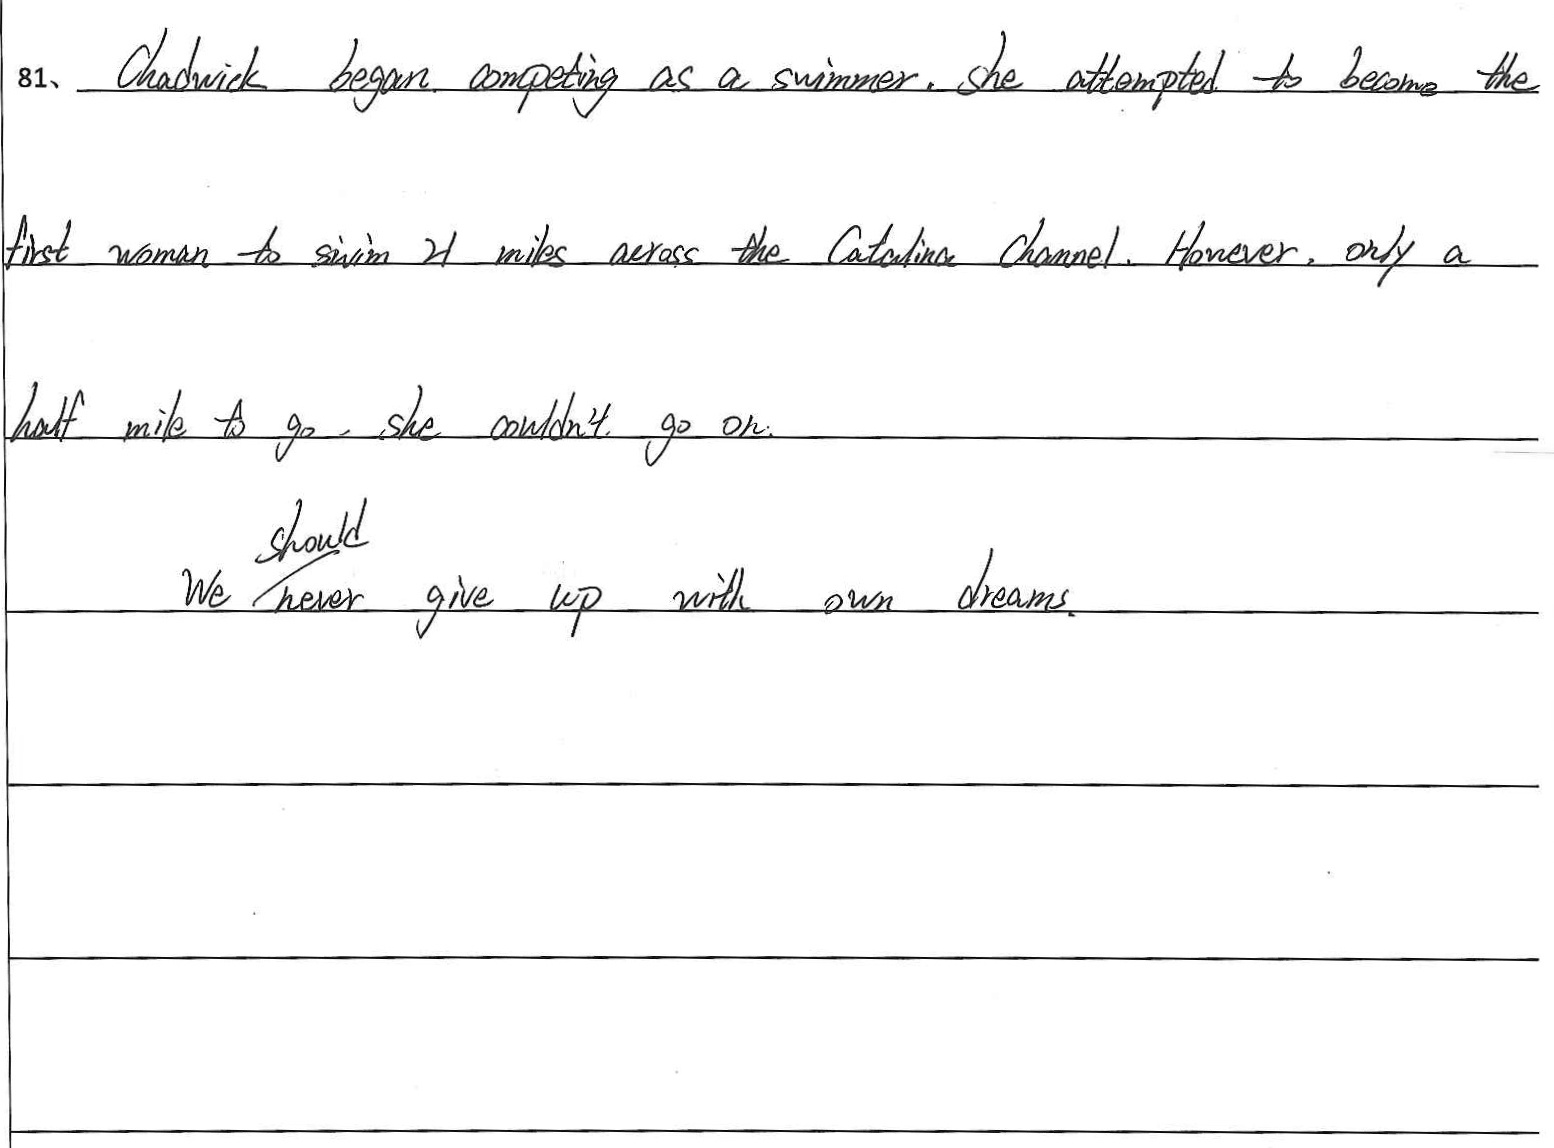 81、 Chadwick began competing as a swimmer. she attempted to become the
first woman to swim 21 miles across the Catalina Channel. However, only a
half mile to go, she couldn't go on.
should
We never give up with own dreams.